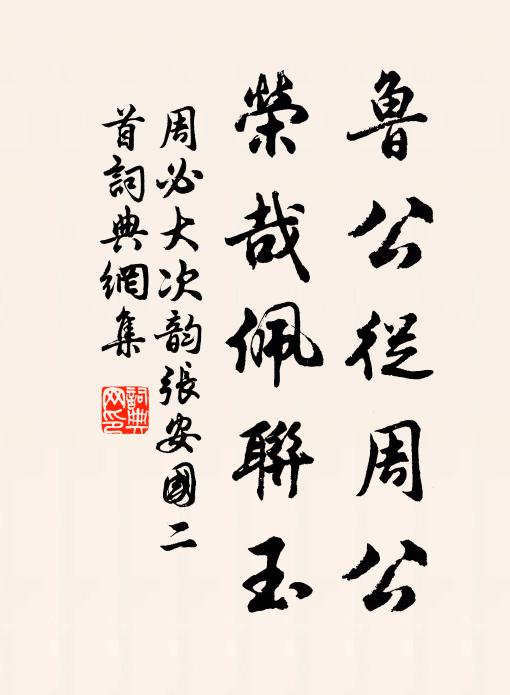 魯公從周公
榮哉佩聯玉
周必大次韵張安國二
首詞典網集
詞典
网印